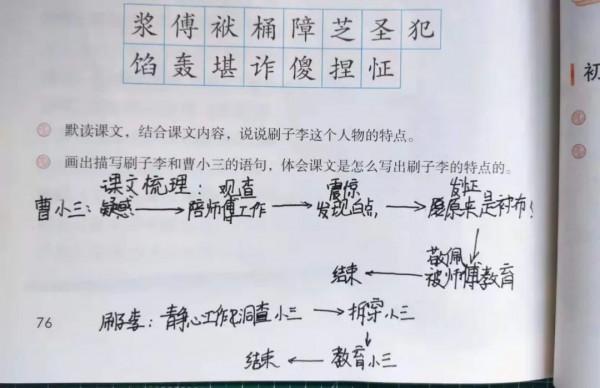 浆 傅 袱 桶 障 芝 圣 犯
馅 轰 堪 诈 傻 捏 怔
默读课文，结合课文内容，说说刷子李这个人物的特点。
画出描写刷子李和曹小三的语句，体会课文是怎么写出刷子李的特点的。
初
课文梳理：观查 震惊 发怔
曹小三：疑惑 → 陪师傅工作 → 发现白点 → 原来是衬布！
敬佩
结束 ← 被师傅教育
76
刷子李：静心工作 洞查小三 → 拆穿小三
结束 ← 教育小三